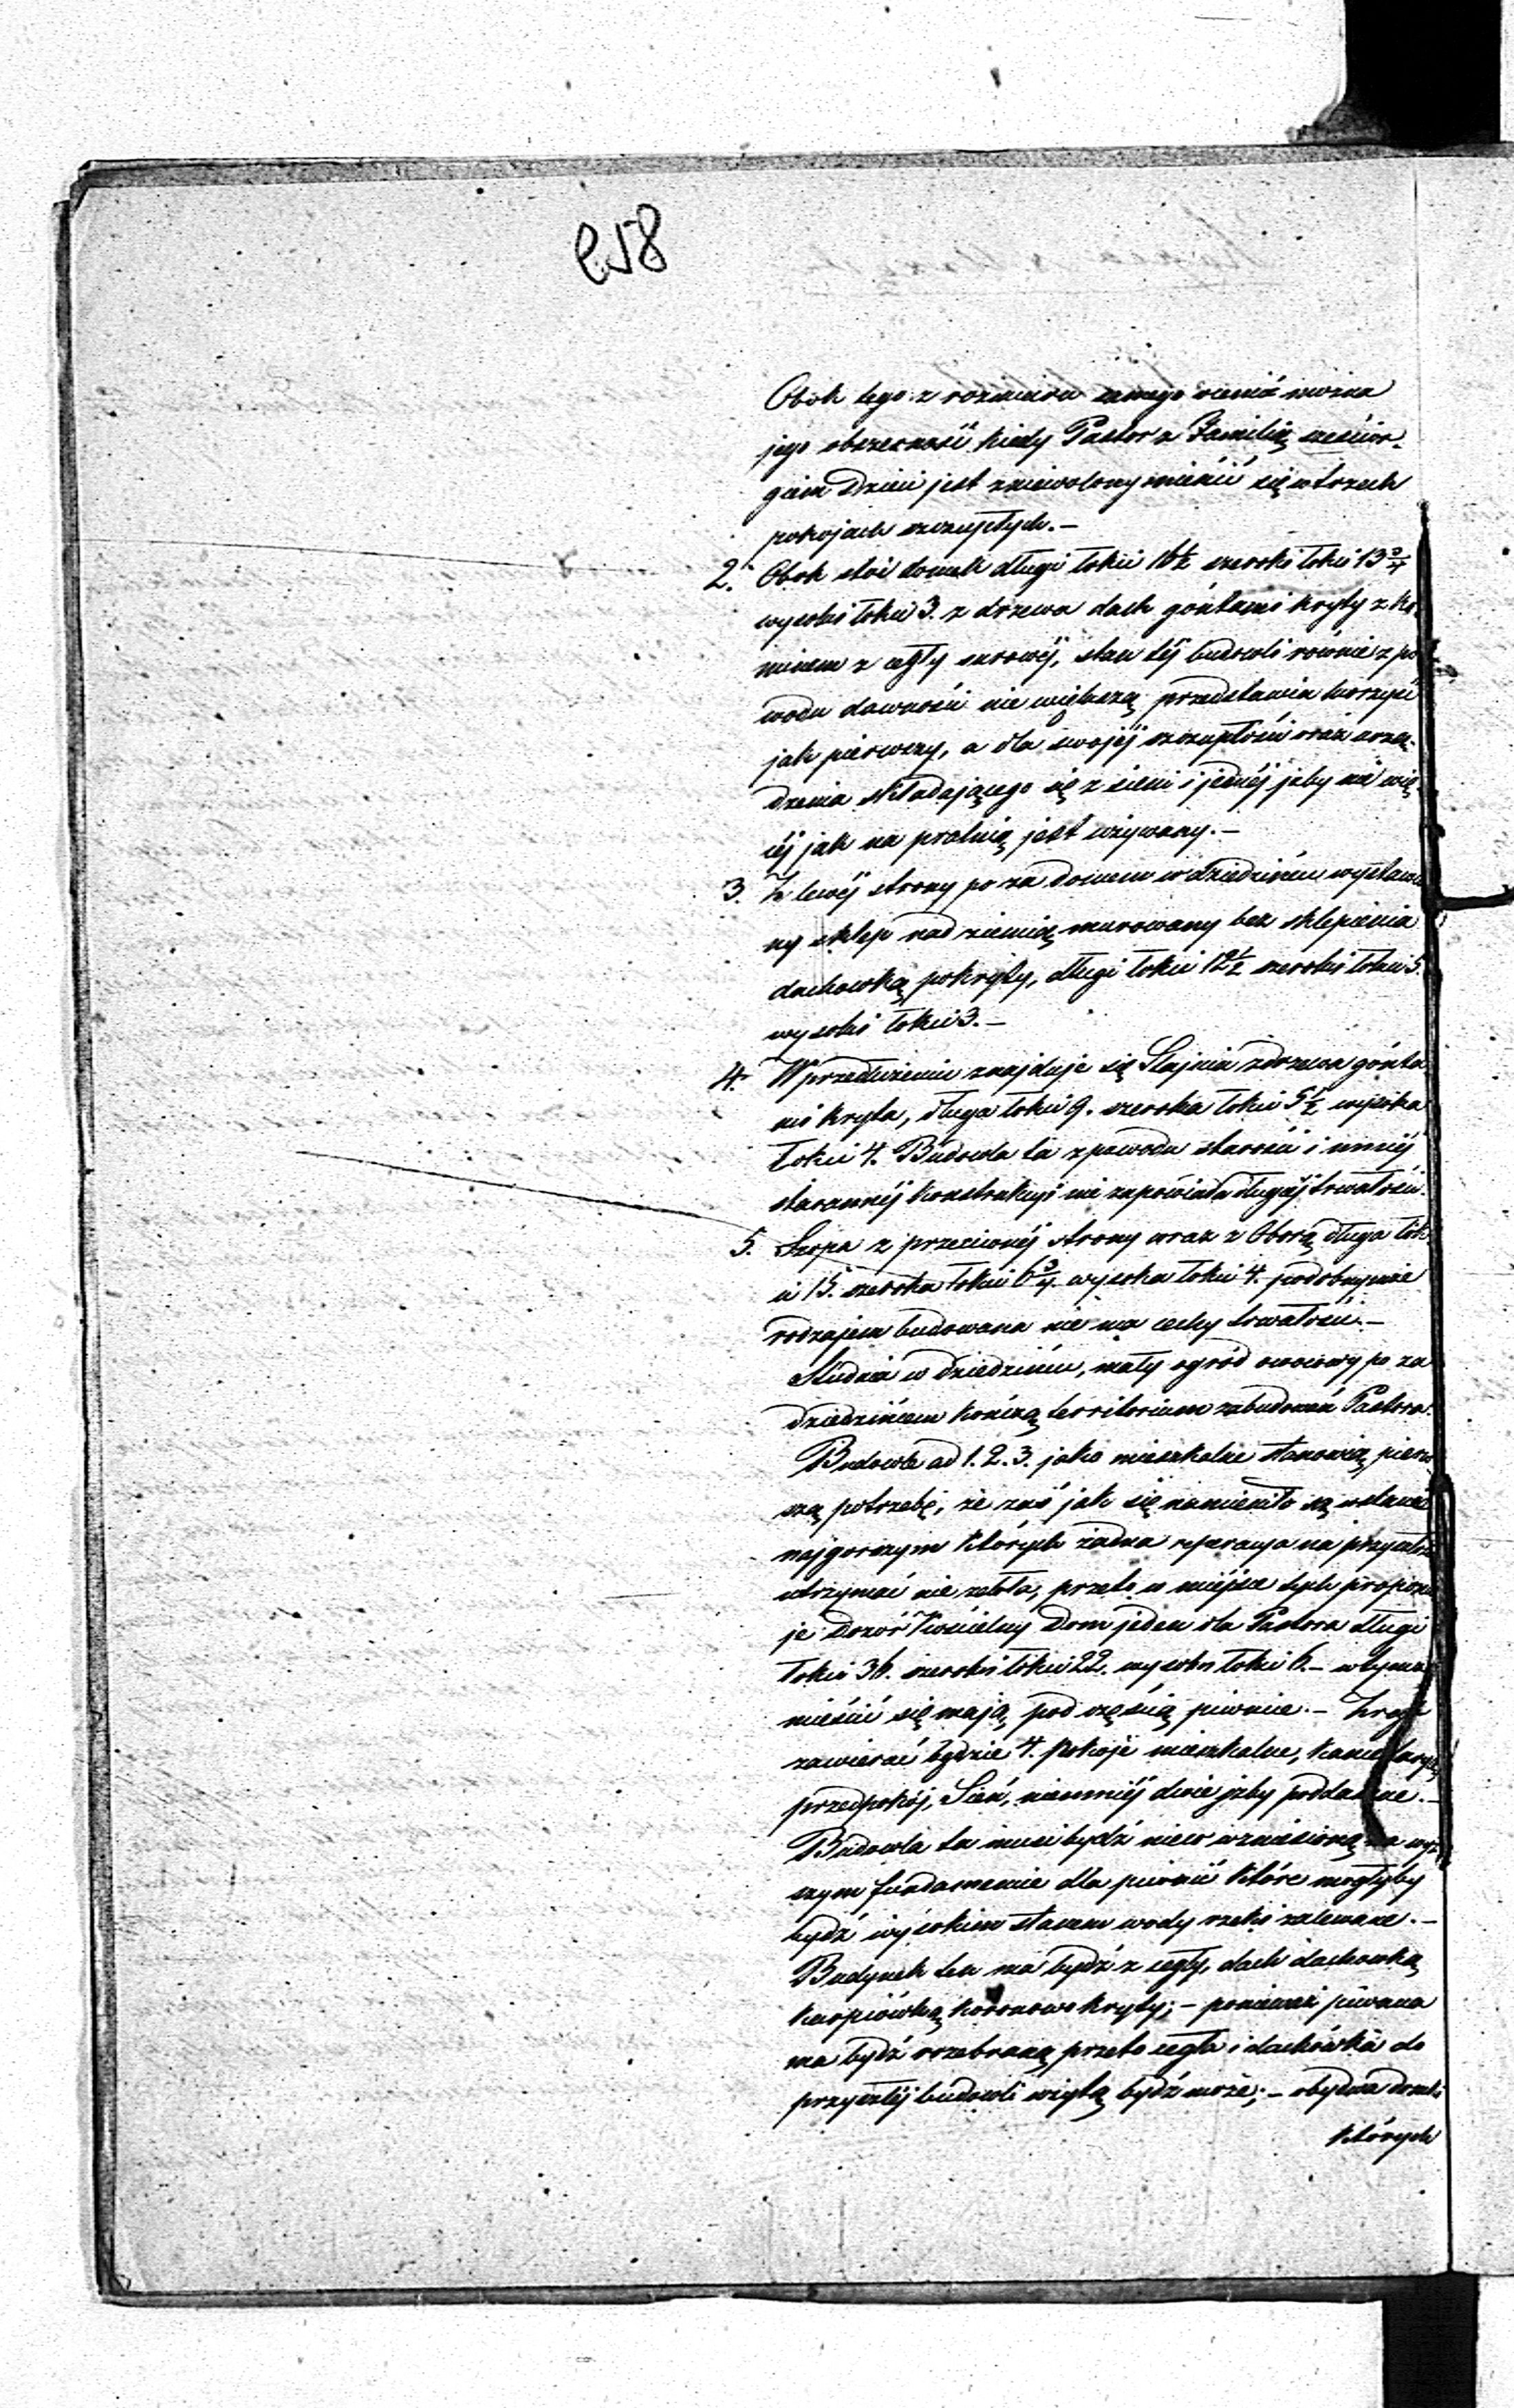 258
Obok tego z rozmiaru samego ocenić można
jego obszerność kiedy Pastor z Familią sześcior-
giem Dzieci jest zniewolony mieścić się w trzech
pokojach szczupłych. —
2. Obok stoi domek długi łokci 16½ szeroki łokci 13¾
wysoki łokci 3. z drzewa dach góntami kryty z ko-
minem z cegły surowéj, stan téj budowli równie z po
wodu dawności nie większą przedstawia korzyść
jak pierwszy, a dla swojéj szczupłości oraz urzą-
dzenia składającego się z sieni i jednéj jzby nie wię-
céj jak na pralnią jest używany. —
3. Z lewéj strony po za domem w dziedzińcu wystawio
ny sklep nad ziemią murowany bez sklepienia
dachowką pokryty, długi łokci 12½ szeroki łokci 5.
wysoki łokci 3. —
4. W przedłużeniu znajduje się Stajnia z drzewa gónta
mi kryta, długa łokci 9. szeroka łokci 5½ wysoka
łokci 4. Budowla ta z powodu starości i mniéj
starannéj konstrukcyi nie zapowiada długiéj trwałości.
5. Szopa z przeciwnéj strony wraz z Oborą długa łok
ci 15. szeroka łokci 6¾. wysoka łokci 4. podobnymże
rodzajem budowana nie ma cechy trwałości. —
Studnia w dziedzińcu, mały ogród owocowy po za
dziedzińcem kończą territorium zabudowań Pastora.
Budowle ad 1. 2. 3. jako mieszkalne stanowią pierw
szą potrzebę, że zaś jak się namieniło są w stanie
najgorszym których żadna reperacya na przyszłość
utrzymać nie zdoła, przeto w miéjsce tych propozu
je Dozór Kościelny Dom jeden dla Pastora długi
łokci 36. szeroki łokci 22. wysoki łokci 6. — w tym
mieścić się mają pod częścią piwnice. —
zawierać będzie 4. pokoje mieszkalne, kancellaryą
przedpokój, Sień, niemniéj dwie jzby poddaszne. —
Budowla ta musi bydź nieco wzniesioną na wyż
szym fundamencie dla piwnic które mogłyby
bydź wysokim stanem wody rzeki zalewane. —
Budynek ten ma bydź z cegły, dach dachowką
karpiówką koronowo kryty; — ponieważ piwnica
ma bydź rozebraną przeto cegła i dachówka do
przyszłéj budowli wziętą bydź może; — obydwa domki
których